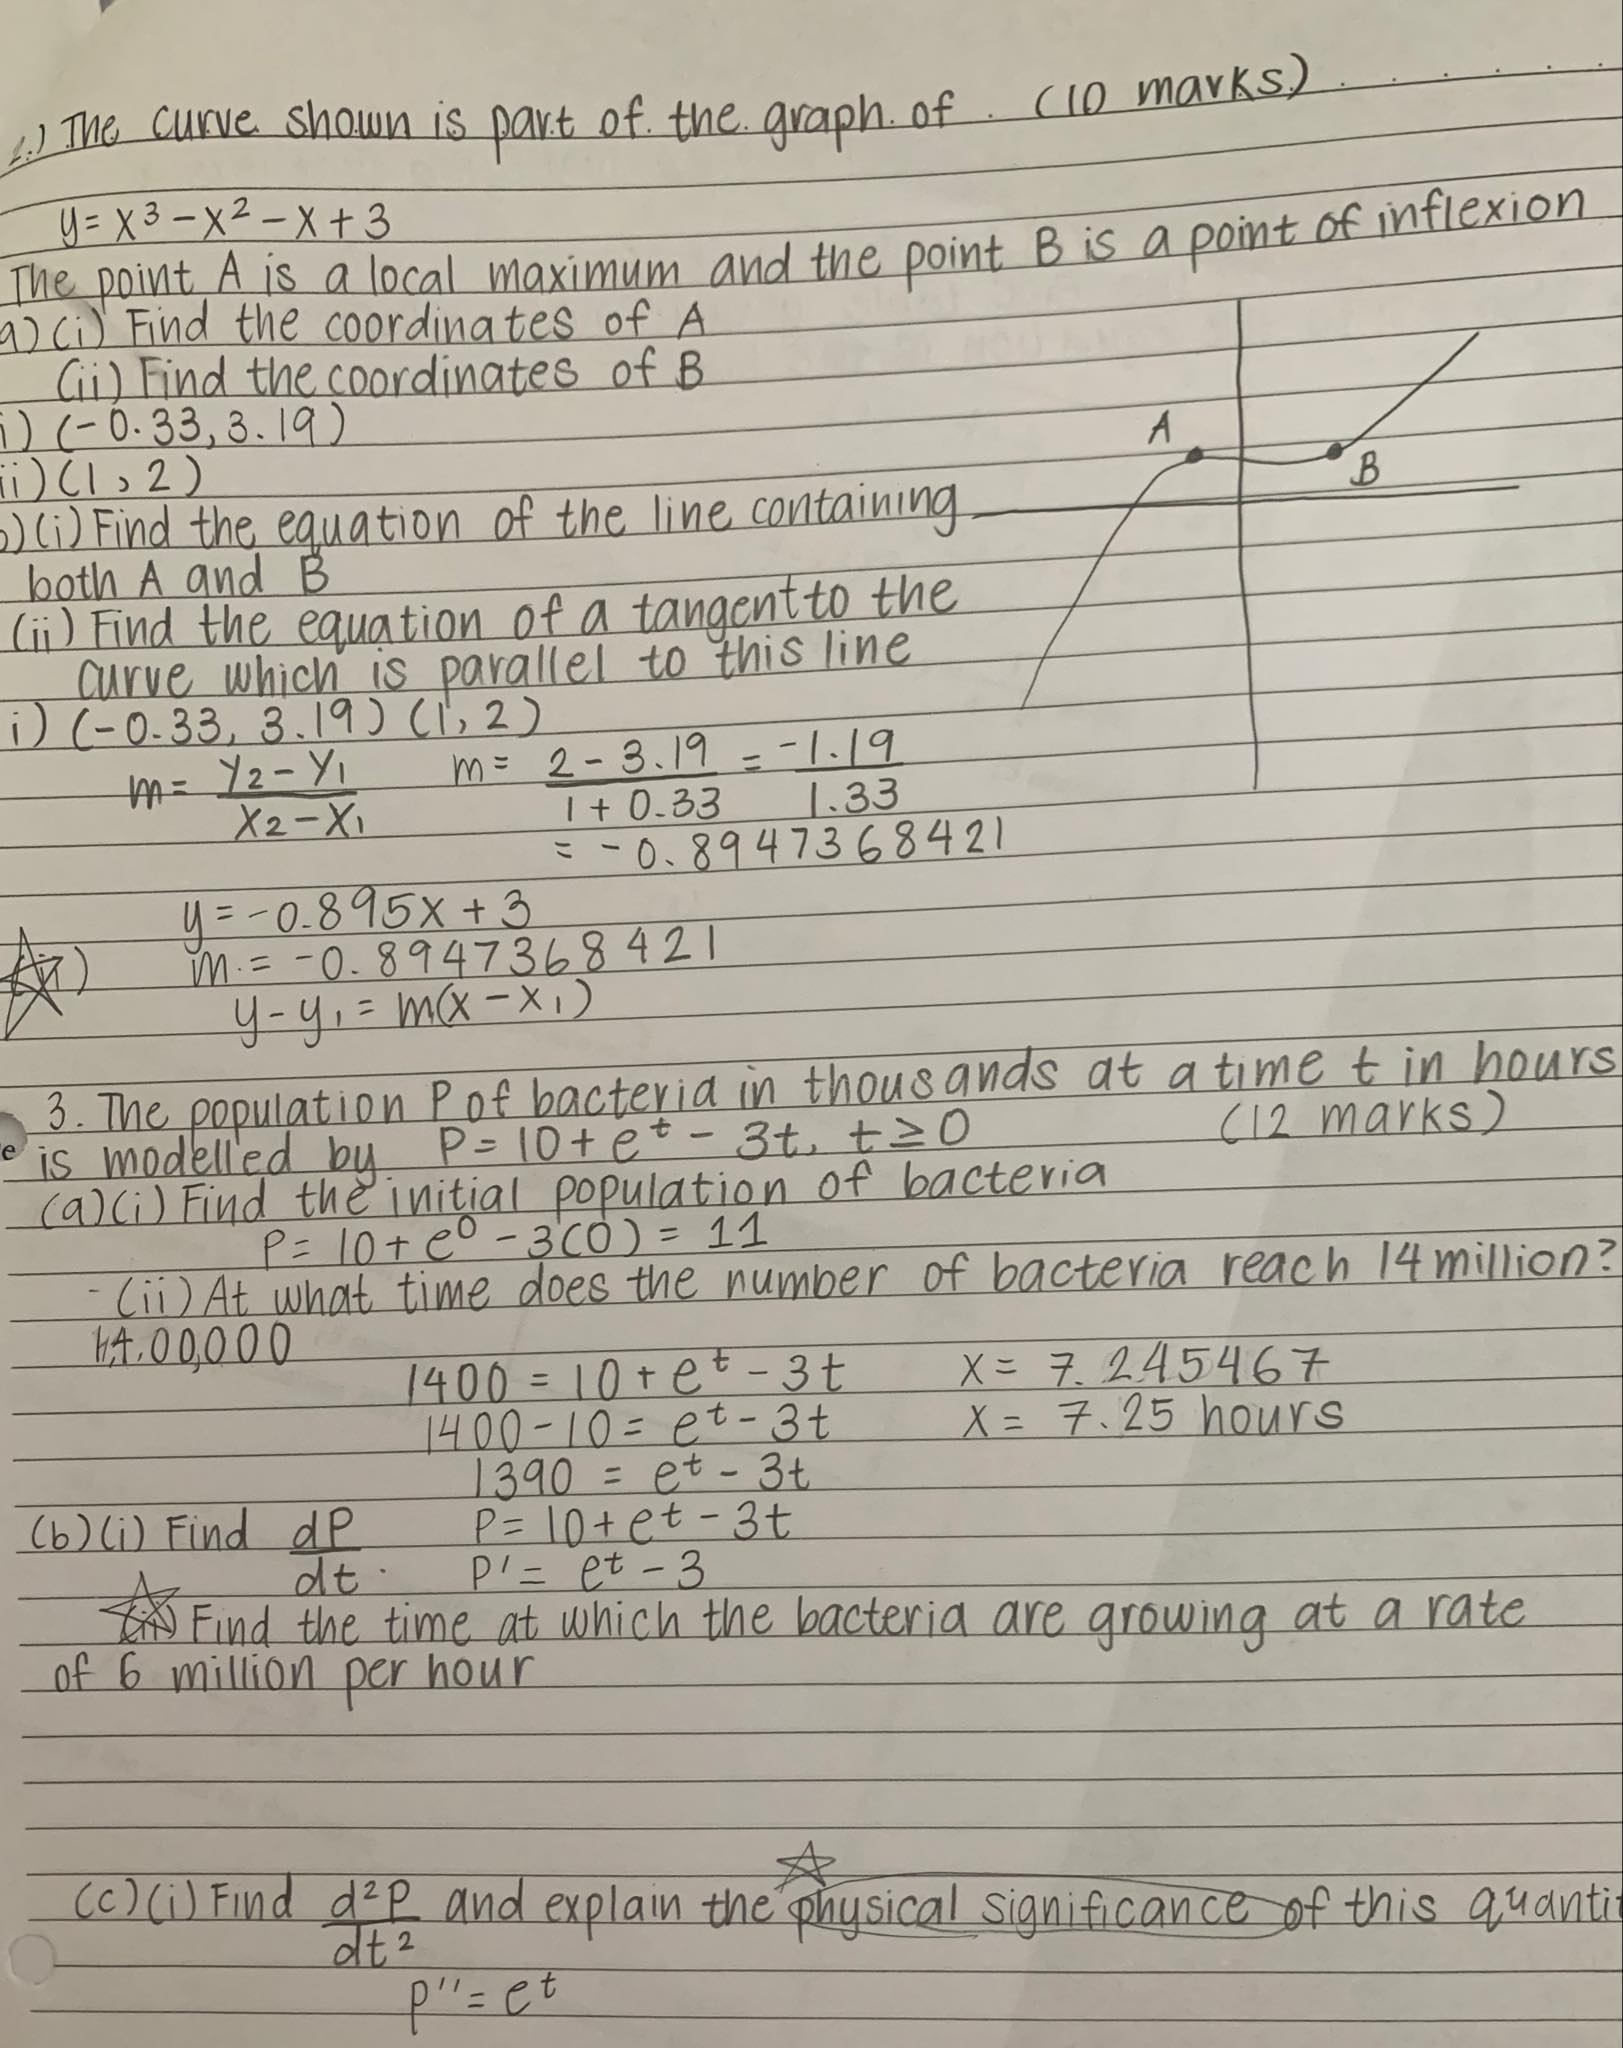 2.) The curve shown is part of the graph of (10 marks)
y = x³ – x² – x + 3
The point A is a local maximum and the point B is a point of inflexion
a) (i) Find the coordinates of A
(ii) Find the coordinates of B
i) (-0.33, 3.19)
ii) (1, 2)
A
B
b) (i) Find the equation of the line containing
both A and B
(ii) Find the equation of a tangent to the
curve which is parallel to this line
i) (-0.33, 3.19) (1, 2)
m = y2 - y1 / x2 - x1 m = 2 - 3.19 / 1 + 0.33 = -1.19 / 1.33
= -0.8947368421
y = -0.895x + 3
ii) m = -0.8947368421
y - y1 = m(x - x1)
3. The population P of bacteria in thousands at a time t in hours
is modelled by P = 10 + e^t - 3t, t ≥ 0 (12 marks)
(a)(i) Find the initial population of bacteria
P = 10 + e^0 - 3(0) = 11
- (ii) At what time does the number of bacteria reach 14 million?
14,00,000
1400 = 10 + e^t - 3t x = 7.245467
1400 - 10 = e^t - 3t x = 7.25 hours
1390 = e^t - 3t
(b)(i) Find dP/dt. P = 10 + e^t - 3t
P' = e^t - 3
(ii) Find the time at which the bacteria are growing at a rate
of 6 million per hour
(c)(i) Find d²P/dt² and explain the physical significance of this quanti
P'' = e^t